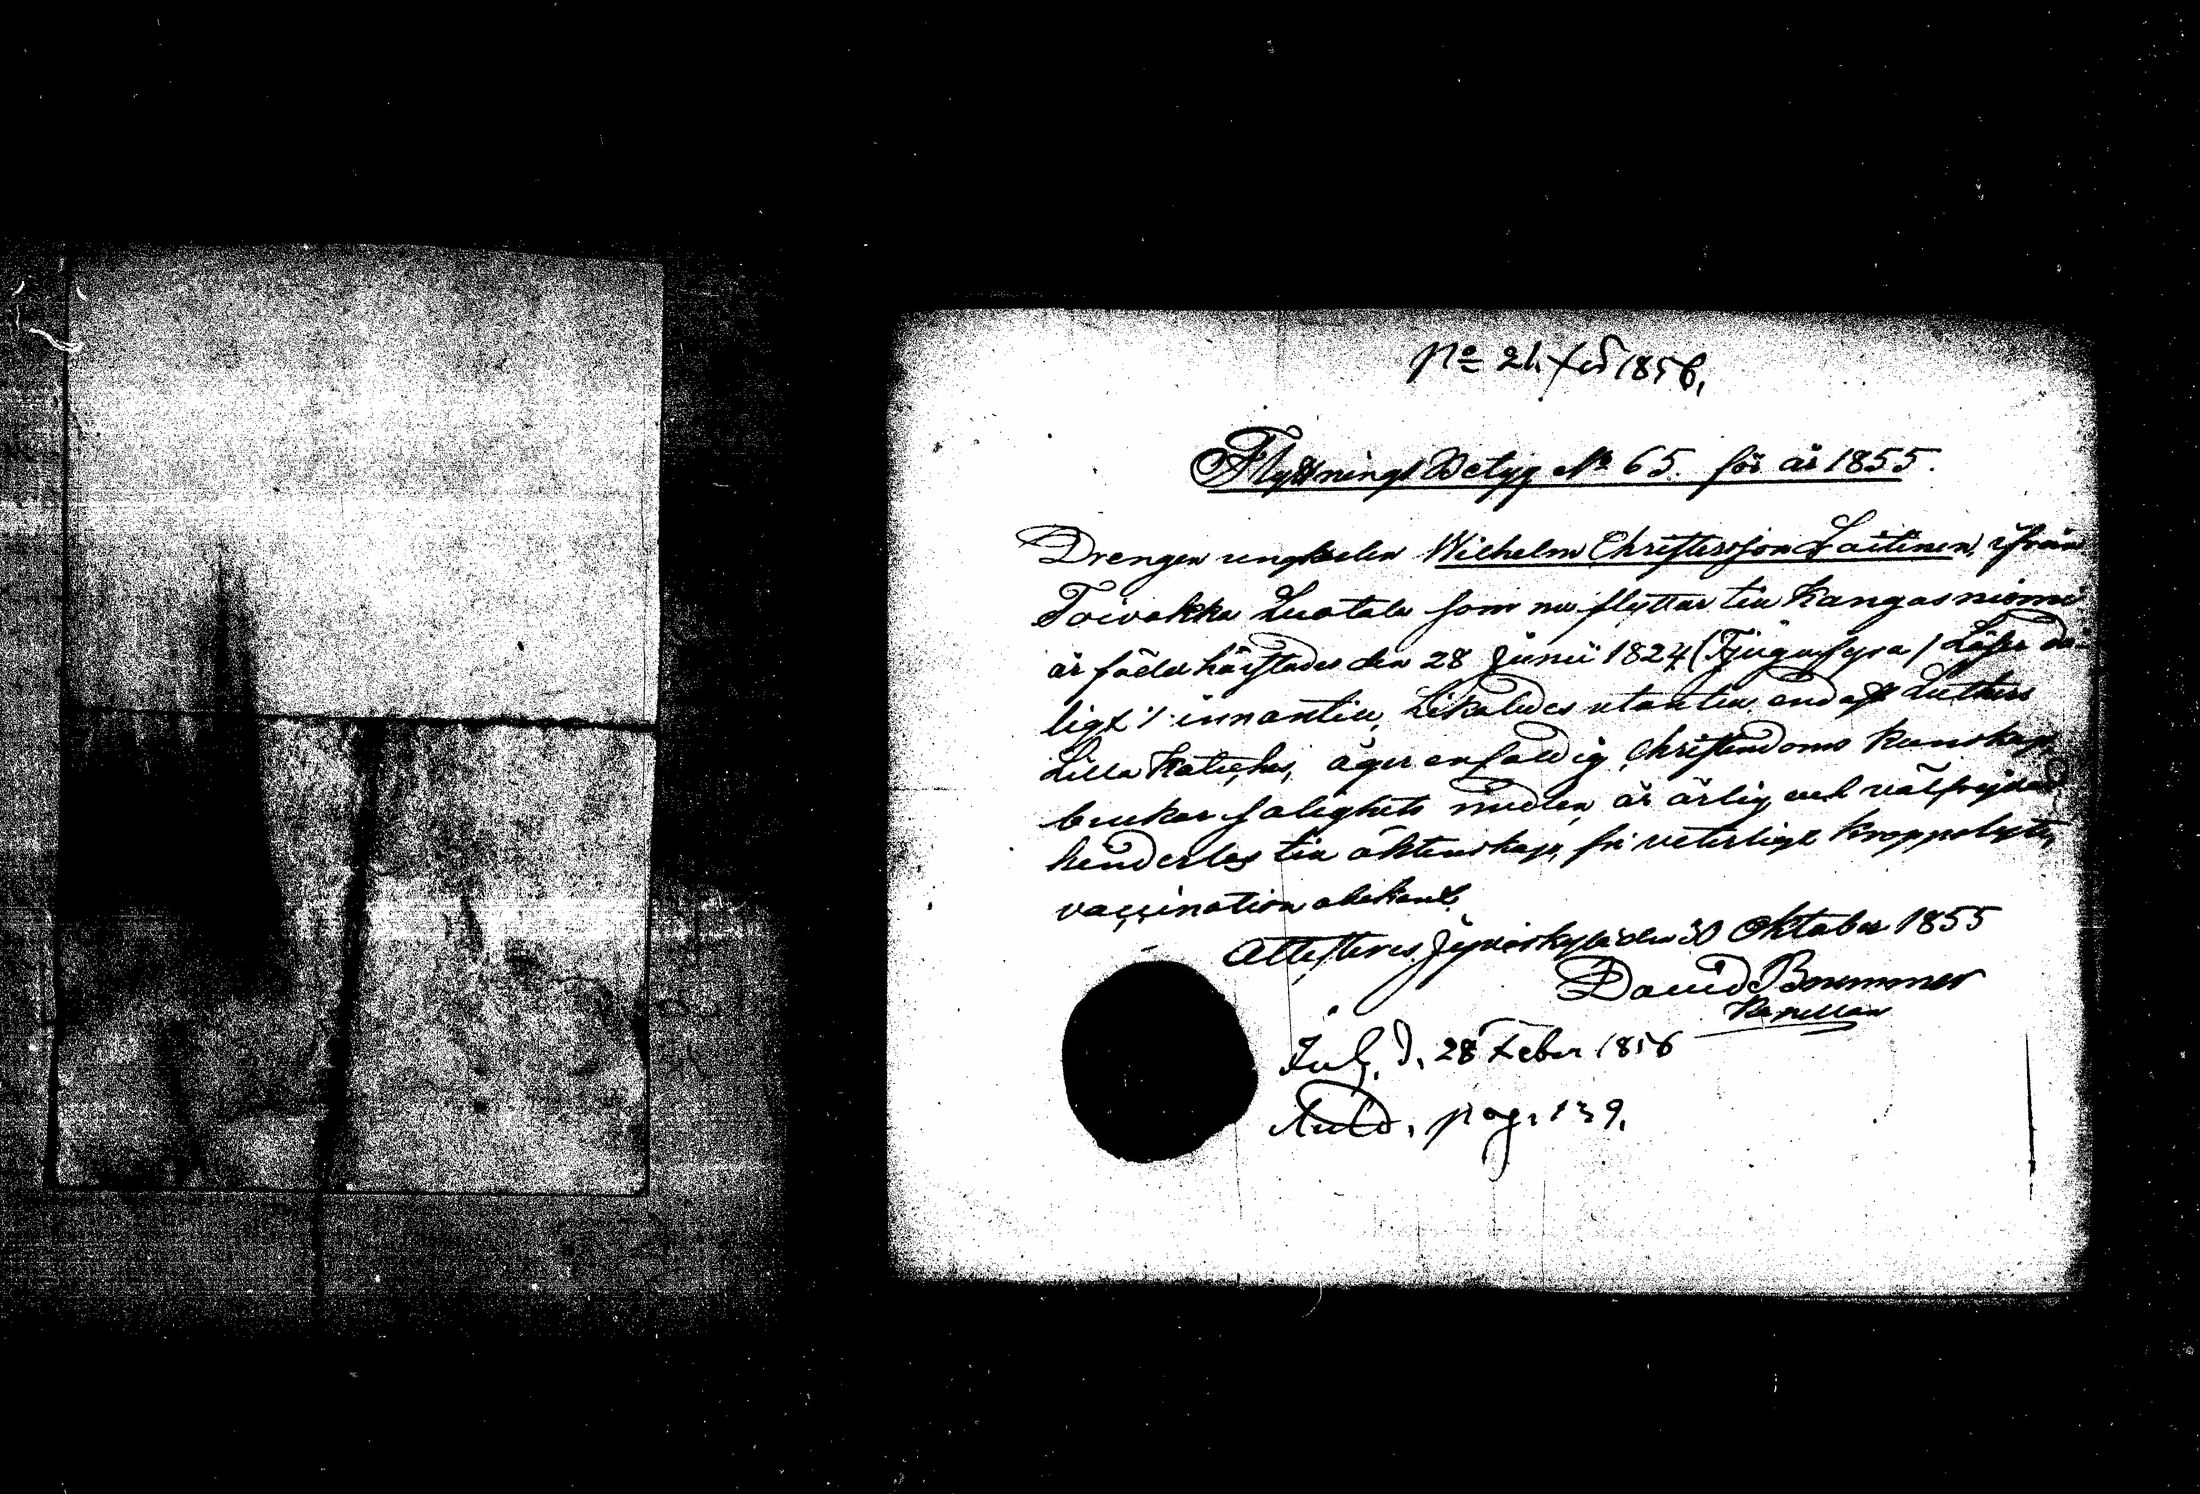 No 21. för 1856.
Flyttnings Betyg No 65. för år 1855.
Drengen ungkarlen Wilhelm Christersson Laitinen, ifrån
Toivakka Luotala som nu flyttar till Kangasniemi
är född härstädes den 28 Junii 1824 (Tjugufyra) Läser då-
ligt innantill, Likaledes utantill endast Luthers
Lilla Kateches, äger enfaldig Christendoms kunskap,
brukar salighets medlen, är ärlig och välfrejdad
hinderlös till äktenskap, fri veterligt kroppslyte,
vaccination obekant.
Attesteras Jyväskylä den 30 Oktober 1855
David Brummer
Kapellan
d. 28 Feber 1856
pag. 139.